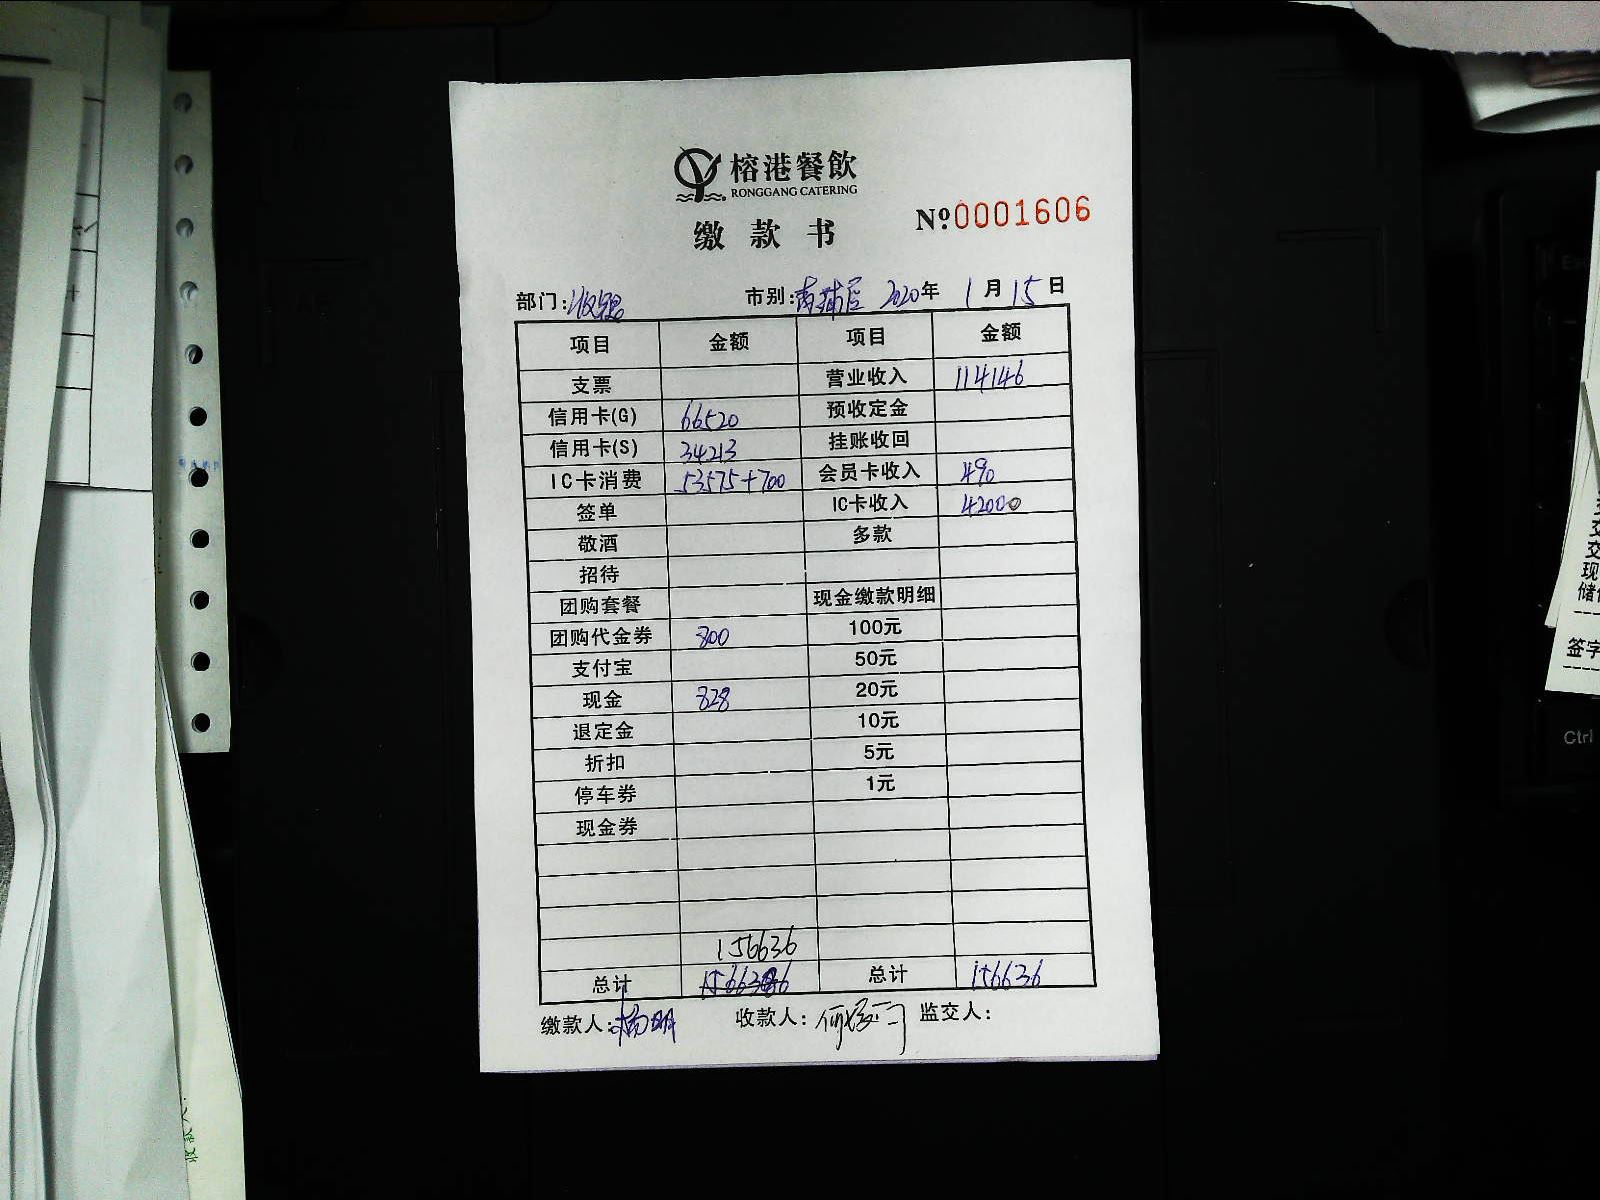 榕港餐飲
RONGGANG CATERING
缴款书
Nº:0001606
部门: 市别:南蒲店 2020年1月15日
项目 金额 项目 金额
支票 营业收入 114146
信用卡(G) 66520 预收定金
信用卡(S) 34213 挂账收回
IC卡消费 53575+700 会员卡收入 490
签单 IC卡收入 42000
敬酒 多款
招待
团购套餐 现金缴款明细
团购代金券 800 100元
支付宝 50元
现金 828 20元
退定金 10元
折扣 5元
停车券 1元
现金券
156636
总计 总计 156636
缴款人: 收款人: 监交人:
签字
Ctrl